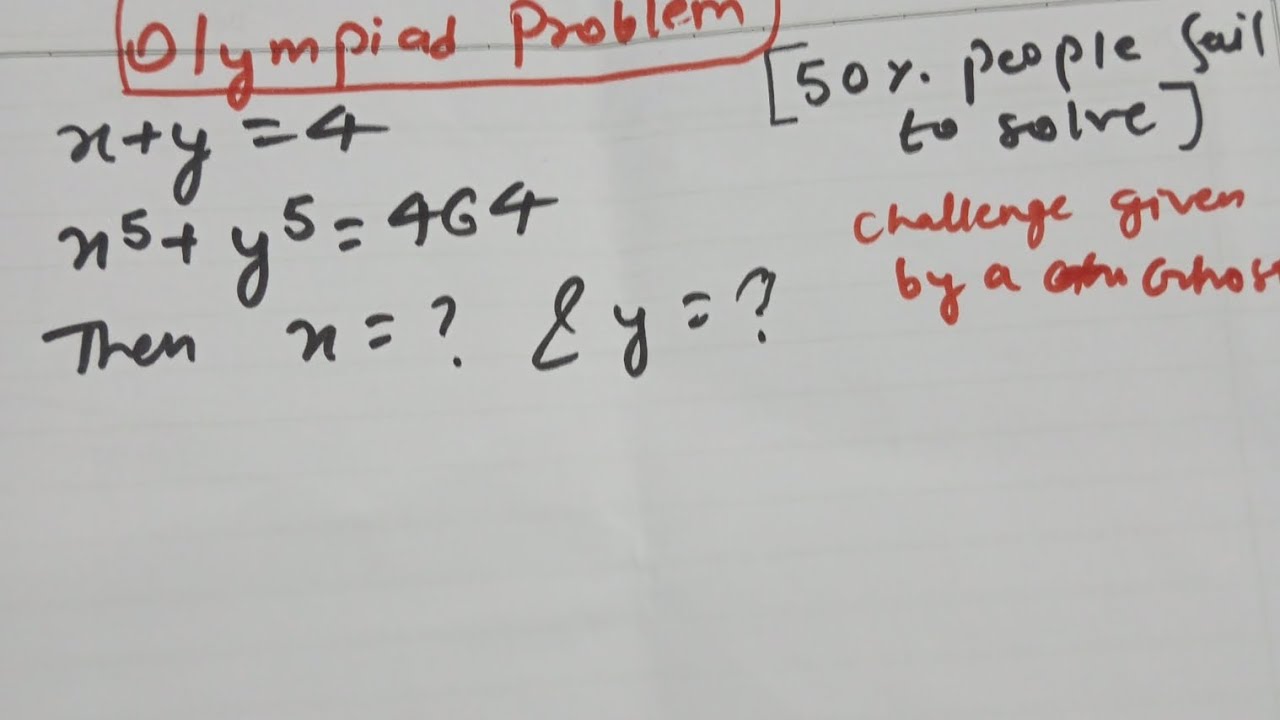 Olympiad Problem
[50 %. people fail
to solve]
x+y=4
x⁵+y⁵=464
challenge given
by a Ghost
Then x=? & y=?